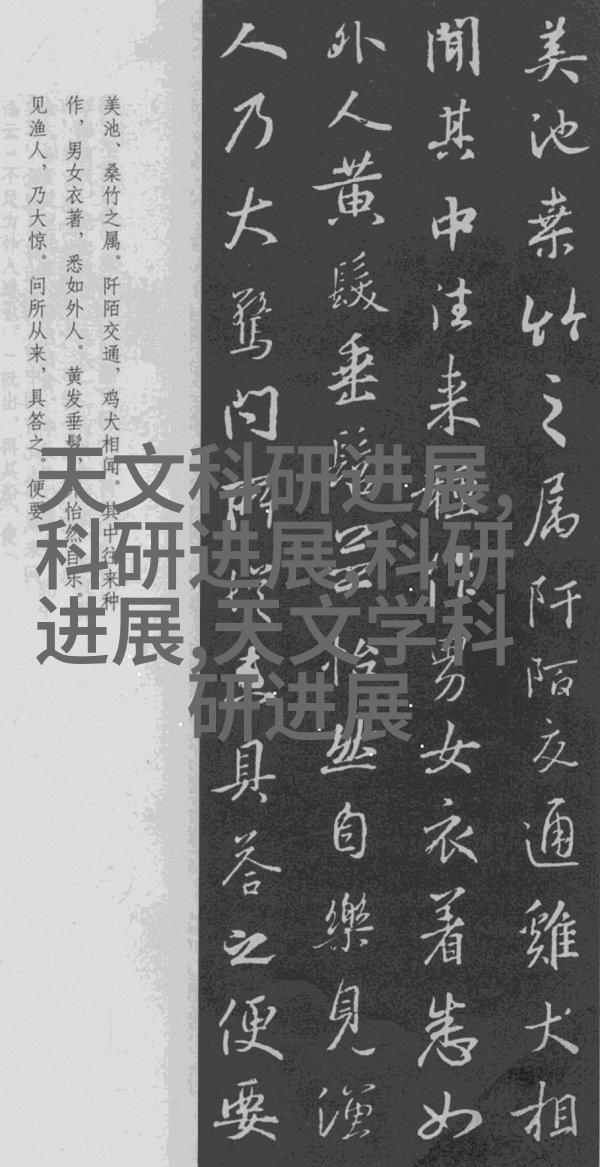 美池桑竹之属阡陌交通雞犬相
聞其中往来種作男女衣着悉如
外人黄髮垂髫並怡然自樂見漁
人乃大驚问所從来具答之便要
美池、桑竹之属。阡陌交通，鸡犬相闻。其中往来种
作，男女衣著，悉如外人。黄发垂髫，怡然自乐。
见渔人，乃大惊。问所从来，具答之。便要
天文科研进展,
科研进展,科研
进展,天文学科
研进展